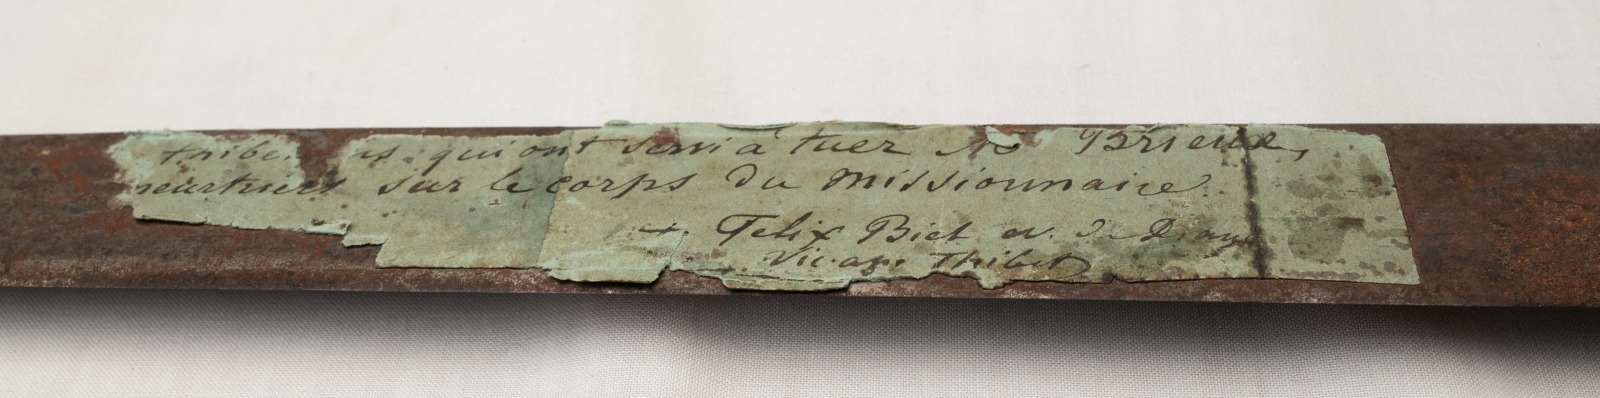 thibe us qui ont servi à tuer Mr Brieux,
meurtriers sur le corps du missionnaire.
+ Felix Biet ev. de Diana
Vic. ap. Thibet